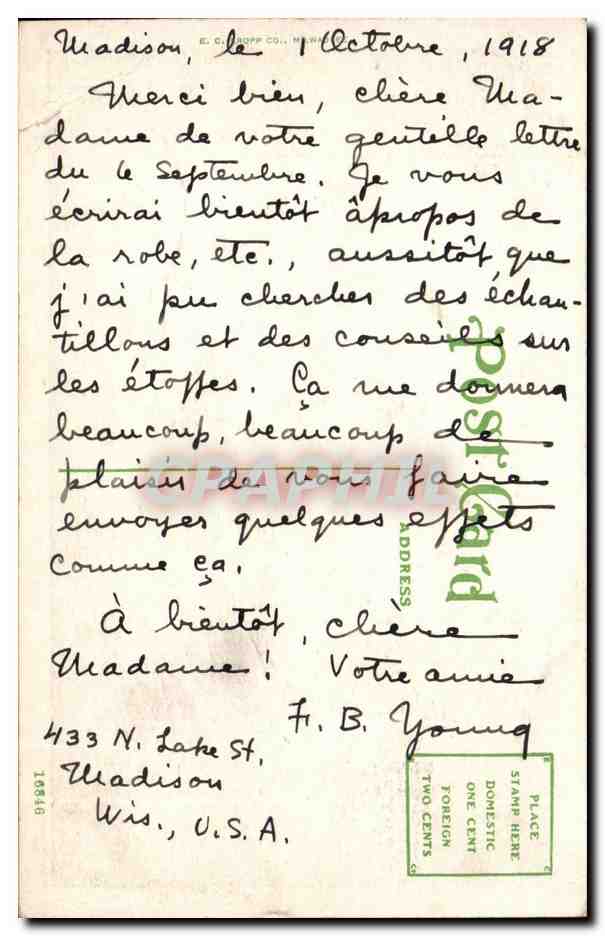 E. C. KROPP CO., MILWAUKEE
Madison, le 1 Octobre, 1918
Merci bien, chère Ma-
dame de votre gentille lettre
du 6 Septembre. Je vous
écrirai bientôt àpropos de
la robe, etc., aussitôt que
j'ai pu chercher des échan-
tillons et des conseils sur
les étoffes. Ça me donnera
beaucoup, beaucoup de
plaisir de vous faire
envoyer quelques effets
comme ça.
À bientôt, chère
Madame! Votre amie
F. B. Young
433 N. Lake St.
Madison
Wis., U.S.A.
Post Card
ADDRESS
CPAPHIL
16846
PLACE
STAMP HERE
DOMESTIC
ONE CENT
FOREIGN
TWO CENTS